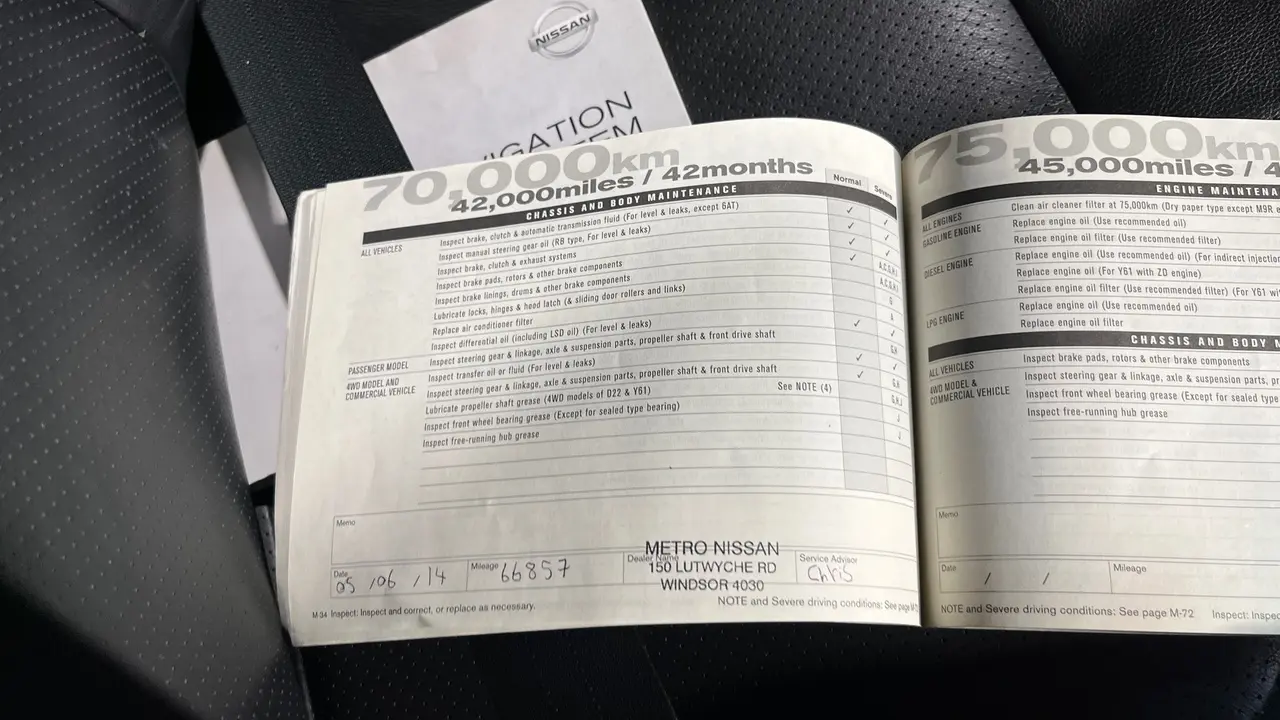 NISSAN
IGATION
70,000km
42,000miles / 42months
Normal
Severe
CHASSIS AND BODY MAINTENANCE
ALL VEHICLES
Inspect brake, clutch & automatic transmission fluid (For level & leaks, except 6AT)
Inspect manual steering gear oil (RB type, For level & leaks)
Inspect brake, clutch & exhaust systems
Inspect brake pads, rotors & other brake components
Inspect brake linings, drums & other brake components
Lubricate locks, hinges & hood latch (& sliding door rollers and links)
Replace air conditioner filter
Inspect differential oil (including LSD oil) (For level & leaks)
PASSENGER MODEL
Inspect steering gear & linkage, axle & suspension parts, propeller shaft & front drive shaft
4WD MODEL AND
COMMERCIAL VEHICLE
Inspect transfer oil or fluid (For level & leaks)
Inspect steering gear & linkage, axle & suspension parts, propeller shaft & front drive shaft
Lubricate propeller shaft grease (4WD models of D22 & Y61) See NOTE (4)
Inspect front wheel bearing grease (Except for sealed type bearing)
Inspect free-running hub grease
Memo
Date 05 / 06 / 14
Mileage 66857
Dealer Name
METRO NISSAN
150 LUTWYCHE RD
WINDSOR 4030
Service Advisor
Chris
M-34 Inspect: Inspect and correct, or replace as necessary.
NOTE and Severe driving conditions: See page
75,000km
45,000miles / 4
ENGINE MAINTENA
ALL ENGINES
Clean air cleaner filter at 75,000km (Dry paper type except M9R
GASOLINE ENGINE
Replace engine oil (Use recommended oil)
Replace engine oil filter (Use recommended filter)
DIESEL ENGINE
Replace engine oil (Use recommended oil) (For indirect injectio
Replace engine oil (For Y61 with ZD engine)
Replace engine oil filter (Use recommended filter) (For Y61 wi
LPG ENGINE
Replace engine oil (Use recommended oil)
Replace engine oil filter
CHASSIS AND BODY M
ALL VEHICLES
Inspect brake pads, rotors & other brake components
4WD MODEL &
COMMERCIAL VEHICLE
Inspect steering gear & linkage, axle & suspension parts, pr
Inspect front wheel bearing grease (Except for sealed type
Inspect free-running hub grease
Memo
Date / /
Mileage
NOTE and Severe driving conditions: See page M-72 Inspect: Inspec